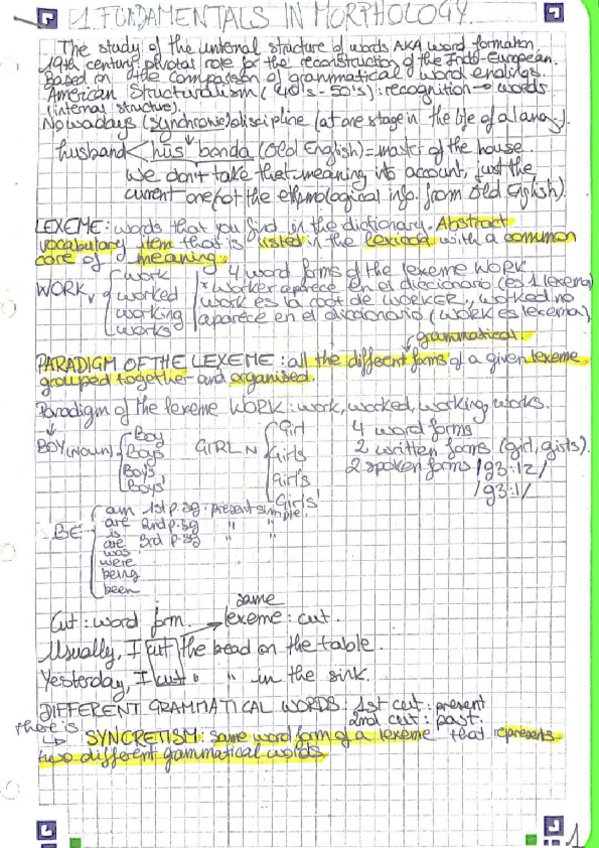 1 FUNDAMENTALS IN MORPHOLOGY.
The study of the internal structure of words AKA word formation.
19th century pivotal role for the reconstruction of the Indo-European.
Based on the comparison of grammatical word endings.
American Structuralism (40's-50's): recognition → words
(internal structure).
Nowadays (synchronic) discipline (at one stage in the life of a lang).
husband < hus bonda (Old English) = master of the house.
We don't take that meaning into account, just the
current one (not the info. from Old English).
LEXEME: words that you find in the dictionary. Abstract
vocabulary item that is listed in the lexicon with a common
core of meaning.
WORK v { work
worked
working
works
4 word forms of the lexeme WORK
* worker aparece en el diccionario (es 1 lexema)
work es la root de WORKER, worked no
aparece en el diccionario (work es lexema)
grammatical.
PARADIGM OF THE LEXEME: all the different forms of a given lexeme
grouped together and organised.
Paradigm of the lexeme WORK: work, worked, working, works.
BOY (noun) { Boy
Boys
Boy's
Boys'
GIRL N { Girl
Girls
Girl's
Girls'
4 word forms
2 written forms (girl, girls).
2 spoken forms /g3:lz/
/g3:l/
BE { am 1st p. sg. present simple.
are 2nd p. sg " "
is 3rd p. sg " "
are
was
were
being
been
same
Cut: word form. → lexeme: cut.
Usually, I cut the bead on the table.
Yesterday, I cut " " in the sink.
DIFFERENT GRAMMATICAL WORDS. 1st cut: present
2nd cut: past.
there is
↳ SYNCRETISM: same word form of a lexeme that
two different grammatical words.
1